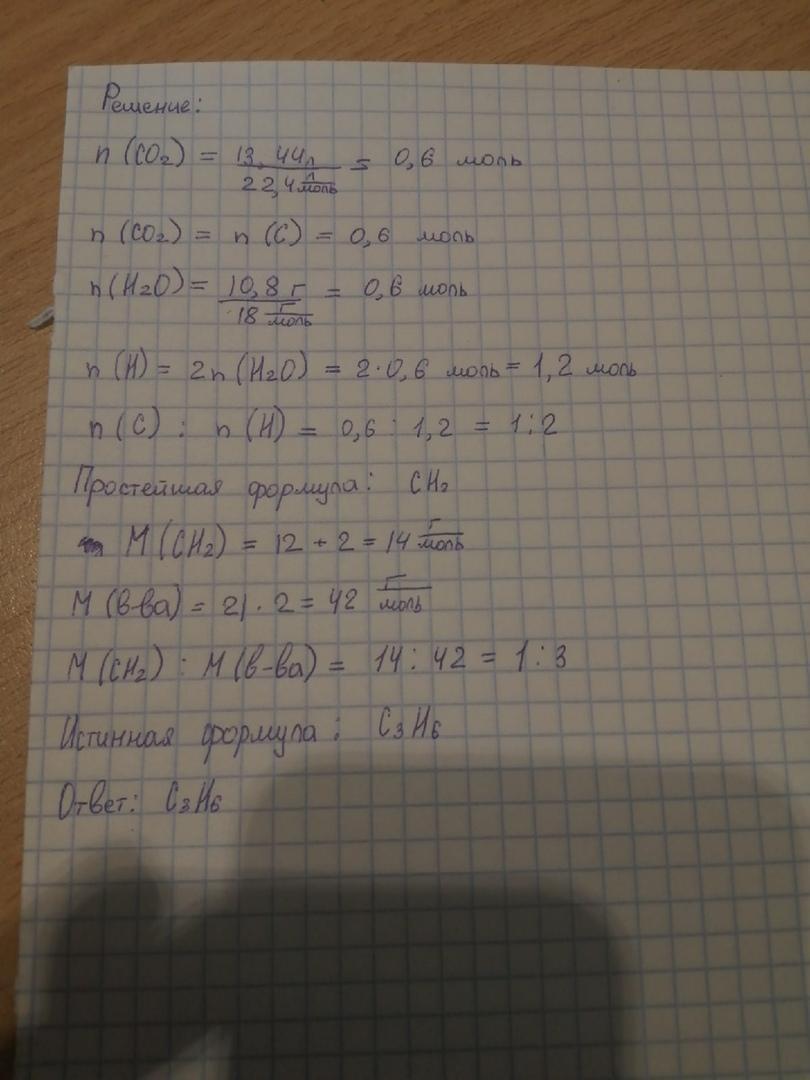 Решение:
n (CO₂) = 13,44л / 22,4 л/моль = 0,6 моль
n (CO₂) = n (C) = 0,6 моль
n(H₂O) = 10,8 г / 18 г/моль = 0,6 моль
n (H) = 2n (H₂O) = 2·0,6 моль = 1,2 моль
n (C) : n (H) = 0,6 : 1,2 = 1:2
Простейшая формула: CH₂
M (CH₂) = 12 + 2 = 14 г/моль
M (в-ва) = 21 · 2 = 42 г/моль
M (CH₂) : M (в-ва) = 14 : 42 = 1 : 3
Истинная формула : C₃H₆
Ответ: C₃H₆